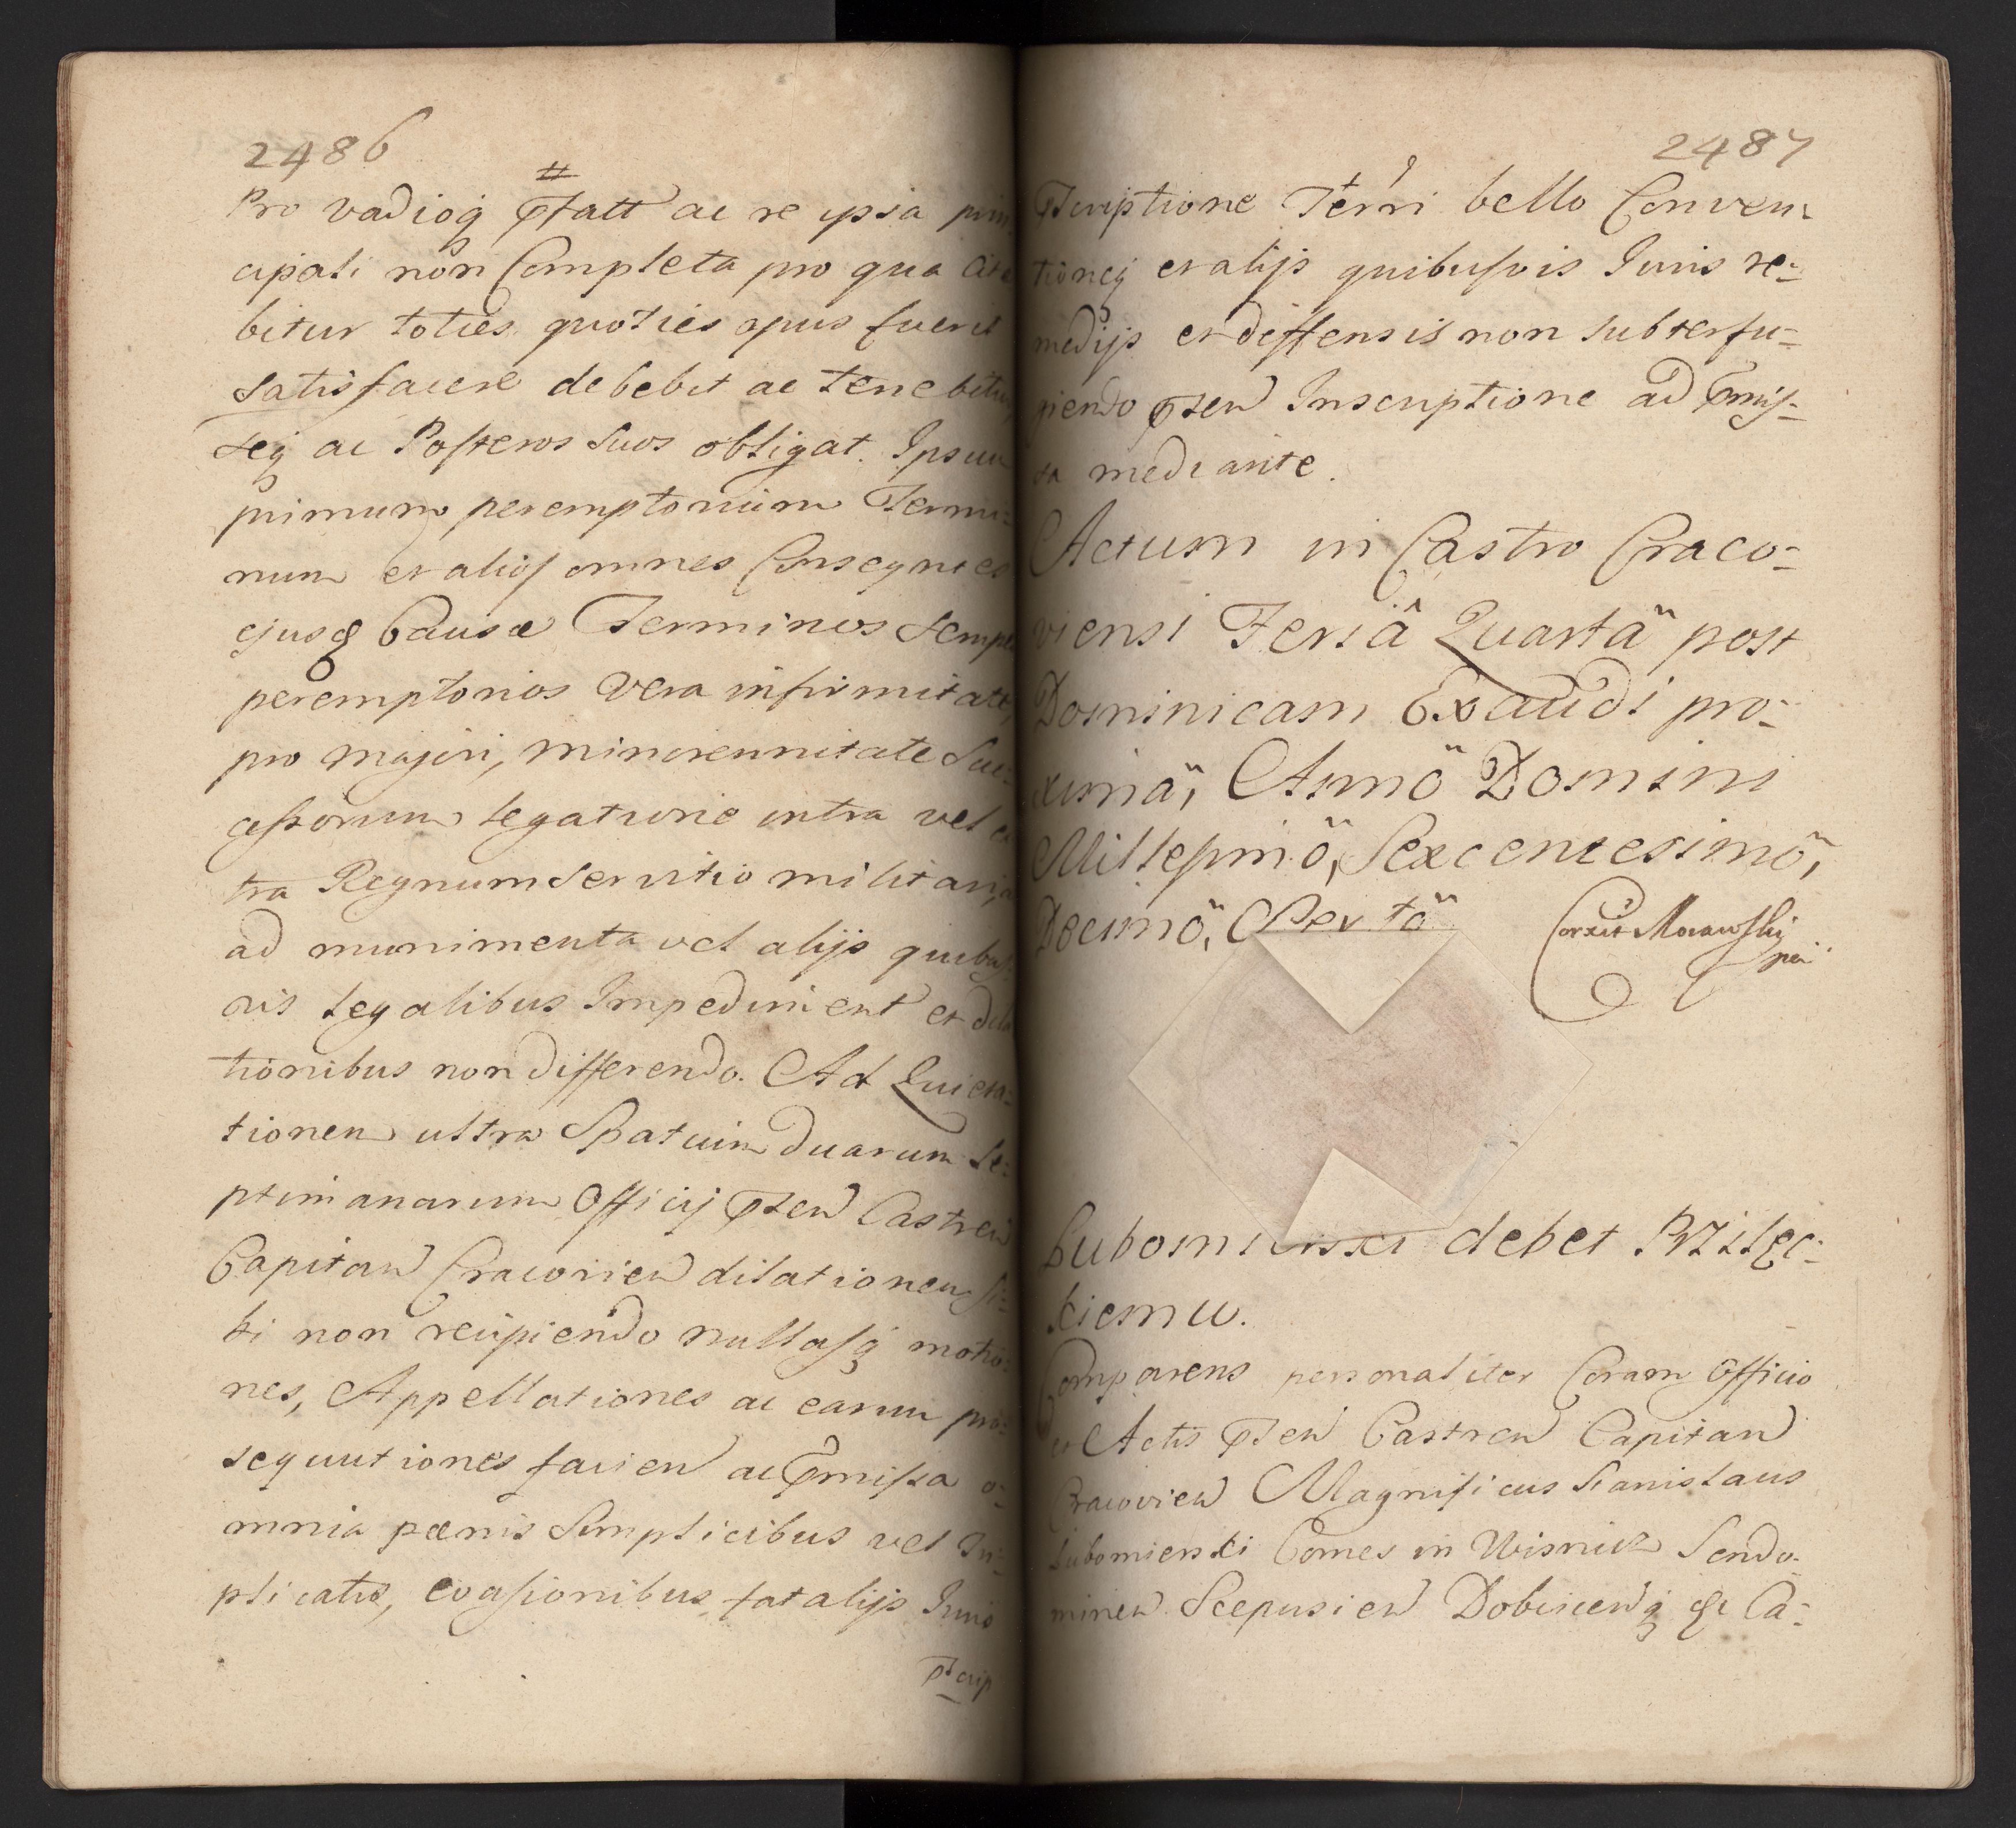 2486
Pro vadioq pfatt ac re ipsa prin
cipali non Completa pro qua Cita
bitur toties quoties opus fuerit
satisfacere debebit ac tenebitur
seq ac Posteros suos obligat. Ipsum
primum peremptorium Termi=
num et alios omnes Consequües
ejusq Causæ Terminos semper
peremptorios vera infirmitatt,
pro majori, minorennitate Suc=
cessorum legatione intra vel ex
tra Regnum servitio militari,
ad munimenta vel alijs quibus
vis legalibus Impediment et dila
tionibus non differendo. Ad Quieta=
tionem ultra Spatium duarum se=
ptimanarum Officij pten Castren
Capitan Cracovien dilationem si=
bi non recipiendo nullasq motio=
nes, Appellationes ac earum pro=
sequutiones facien ac pmissa o=
mnia pœnis simplicibus vel tri=
plicatis, evasionibus fatalijs Juris
pscrip
2487
pscriptione Terri bello Conven=
tioneq et alijs quibusvis Juris re=
medijs et deffensis non subterfu=
giendo pten Inscriptione ad pmis=
sa mediante.
Actum in Castro Craco=
viensi Feriâ Quartâ post
Dominicam Exaudi pro=
ximâ, Annô Domini
Millesimô, Sexcentesimô,
Decimô,
Correxit Morawski
mp
Lubomirski debet Przilęc=
kiemu.
Comparens personaliter Coram Officio
et Actis pten Castren Capitan
Cracovien Magnificus Stanislaus
Lubomierski Comes in Wisnicz Sendo=
mirien Scepusien Dobcicenq &c Ca=